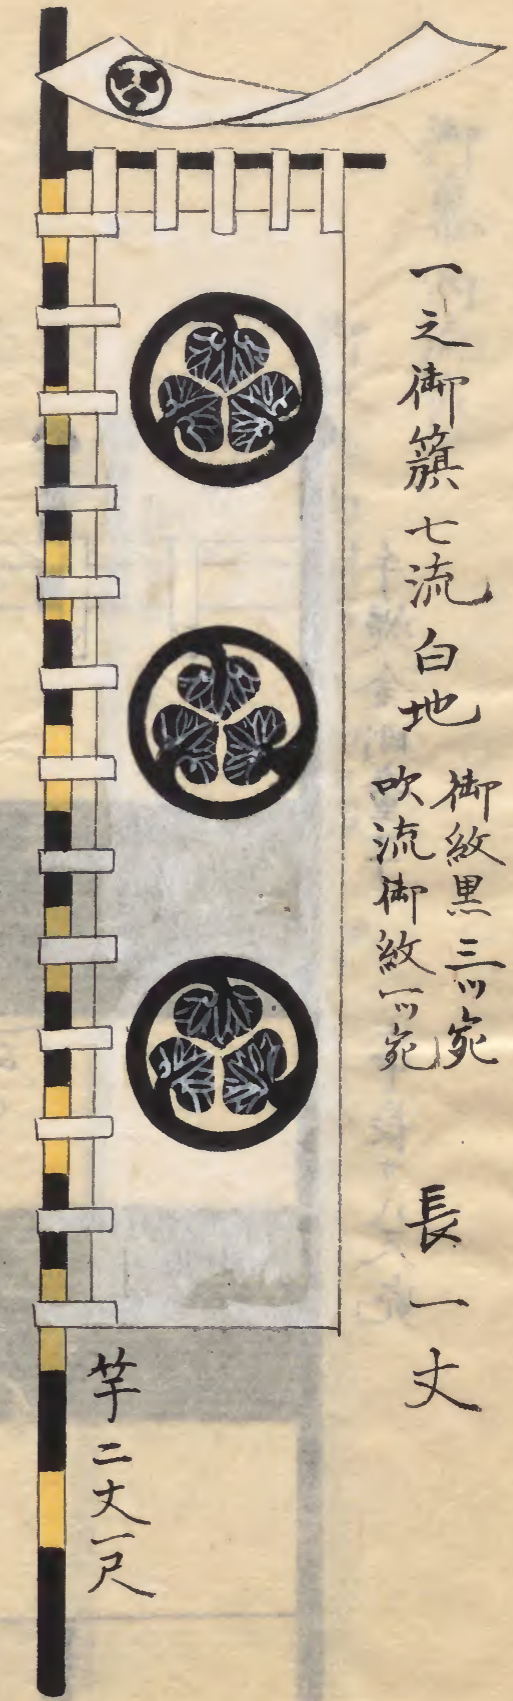 一之御籏七流白地
御紋黒三ツ宛
吹流御紋一ツ宛
長一丈
竿二丈一尺